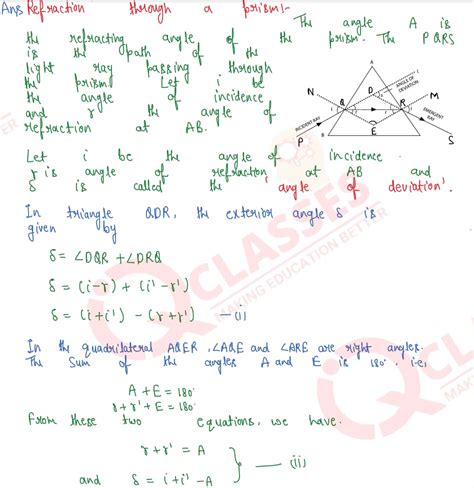 Ans Refraction through a prism:-
The angle A is
the refracting angle of the prism. The PQRS
is the path of the
light ray passing through
the prism. Let i be
the angle of incidence
and r the angle of
refraction at AB.
A
N
D
δ
ANGLE OF
DEVIATION
M
i
Q
r
r'
R
i'
INCIDENT RAY
E
EMERGENT
RAY
P
S
Let i be the angle of incidence
r is angle of refraction at AB and
δ is called the 'angle of deviation'.
In triangle QDR, the exterior angle δ is
given by
δ = ∠DQR + ∠DRQ
δ = (i-r) + (i'-r')
δ = (i+i') - (r+r') —(i)
In the quadrilateral AQER, ∠AQE and ∠ARE are right angles.
The Sum of the angles A and E is 180° i.e,
A + E = 180°
r + r' + E = 180°
From these two equations, we have.
r + r' = A
and δ = i + i' - A
—(ii)
CLASSES
MAKING EDUCATION BETTER